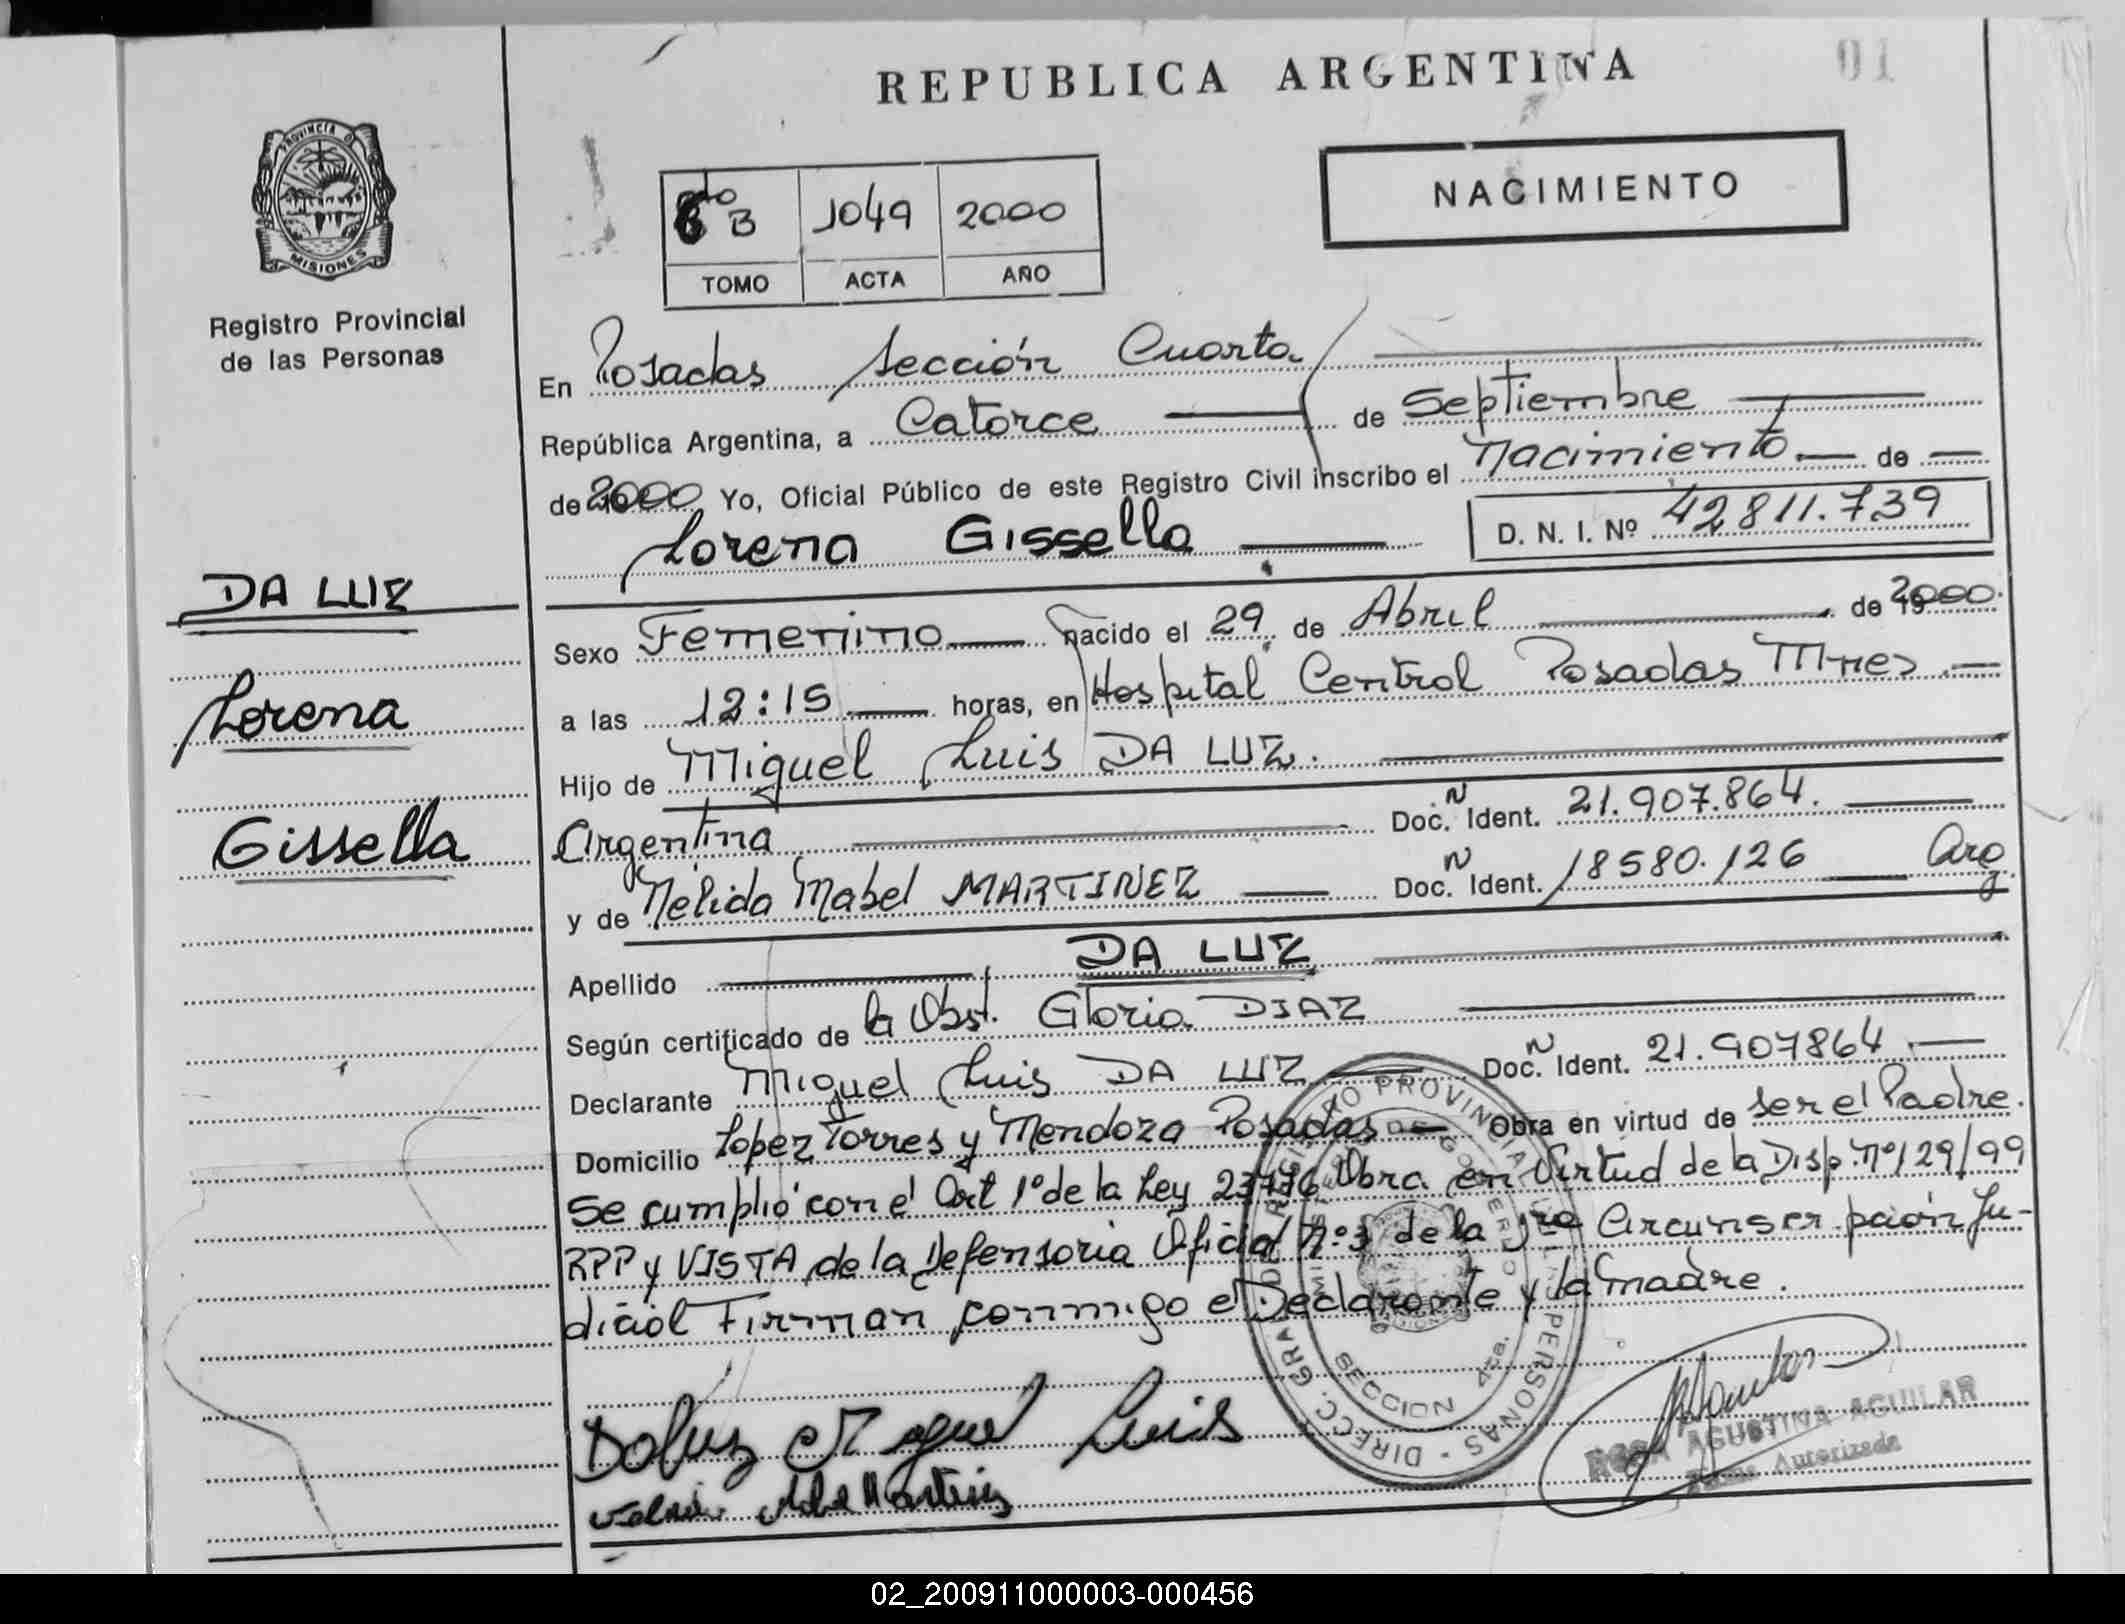 REPUBLICA ARGENTINA
01
PROVINCIA DE
MISIONES
Registro Provincial
de las Personas
6to B 1049 2000
TOMO ACTA AÑO
NACIMIENTO
En Posadas Sección Cuarta
República Argentina, a Catorce de Septiembre
de 2000 Yo, Oficial Público de este Registro Civil inscribo el Nacimiento de
Lorena Gissella
D. N. I. Nº 42811.739
DA LUZ
Lorena
Gissella
Sexo Femenino nacido el 29 de Abril de 2000
a las 12:15 horas, en Hospital Central Posadas Mnes
Hijo de Miguel Luis DA LUZ.
Argentina Doc. N Ident. 21.907.864.
y de Nélida Mabel MARTINEZ Doc. N Ident. 18580.126 Arg
Apellido DA LUZ
Según certificado de la Obst. Gloria DIAZ
Declarante Miguel Luis DA LUZ Doc. N Ident. 21.907864
Domicilio Lopez Torres y Mendoza Posadas Obra en virtud de ser el Padre.
Se cumplió con el Art 1º de la Ley 23776 Obra en Virtud de la Disp. Nº 129/99
RPP y VISTA de la Defensoria Oficial Nº:3 de la 1ra Circunscripción Ju-
dicial Firman conmigo el Declarante y la madre.
DIRECC. GRAL. DE REGISTRO PROVINCIAL DE LAS PERSONAS
SECCION 4ta.
Daluz Miguel Luis
Martinez
ROSA AGUSTINA AGUILAR
Firma Autorizada
02_200911000003-000456